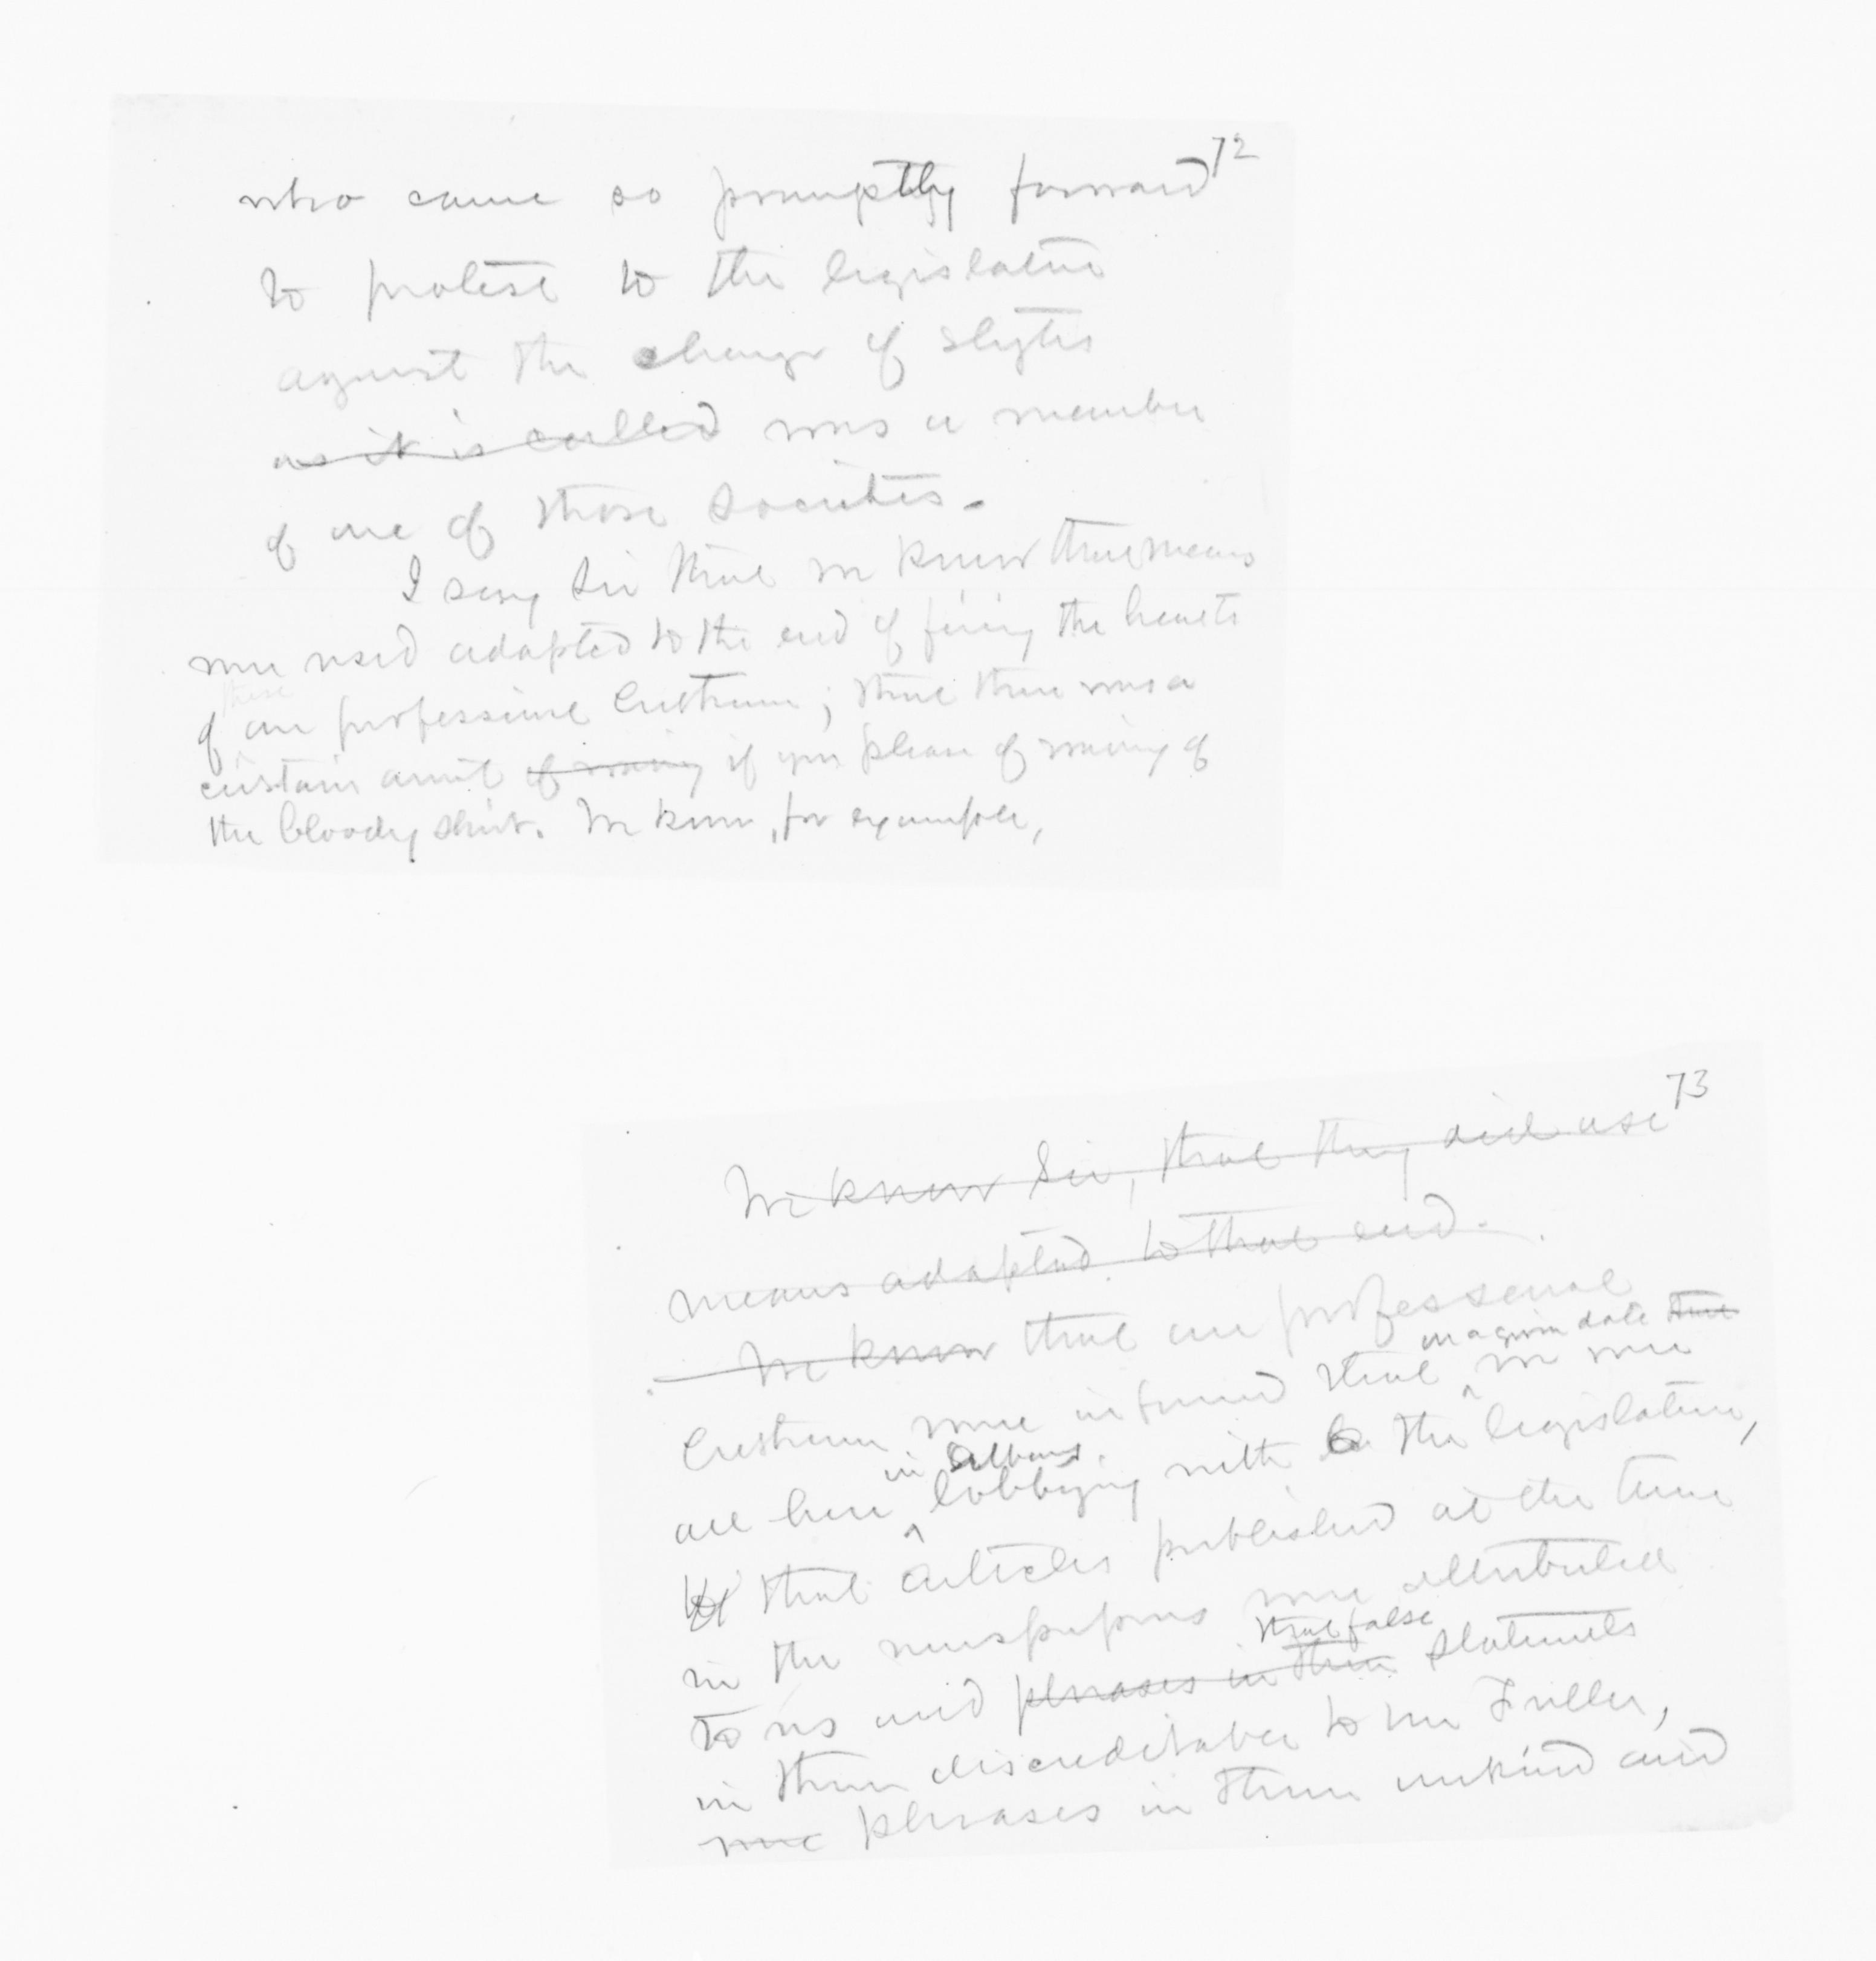 72
who came so promptly forward
to protest to the legislature
against the change of styles
as it is called was a member
of one of those societies.
I say Sir that we know that means
were used adapted to the end of firing the hearts
these
of our professional brethren; that there was a
certain amt of waving if you please of waving of
the bloody shirt. We know, for example,
73
We know Sir, that they did use
means adapted to that end.
We know that our professional
on a given date that
brethren were informed that we were
in Albany
all here lobbying with the legislature,
that articles published at the time
in the newspapers were attributed
that false
to us and phrases in them statements
in them discreditable to Mr Fuller,
were phrases in them unkind and